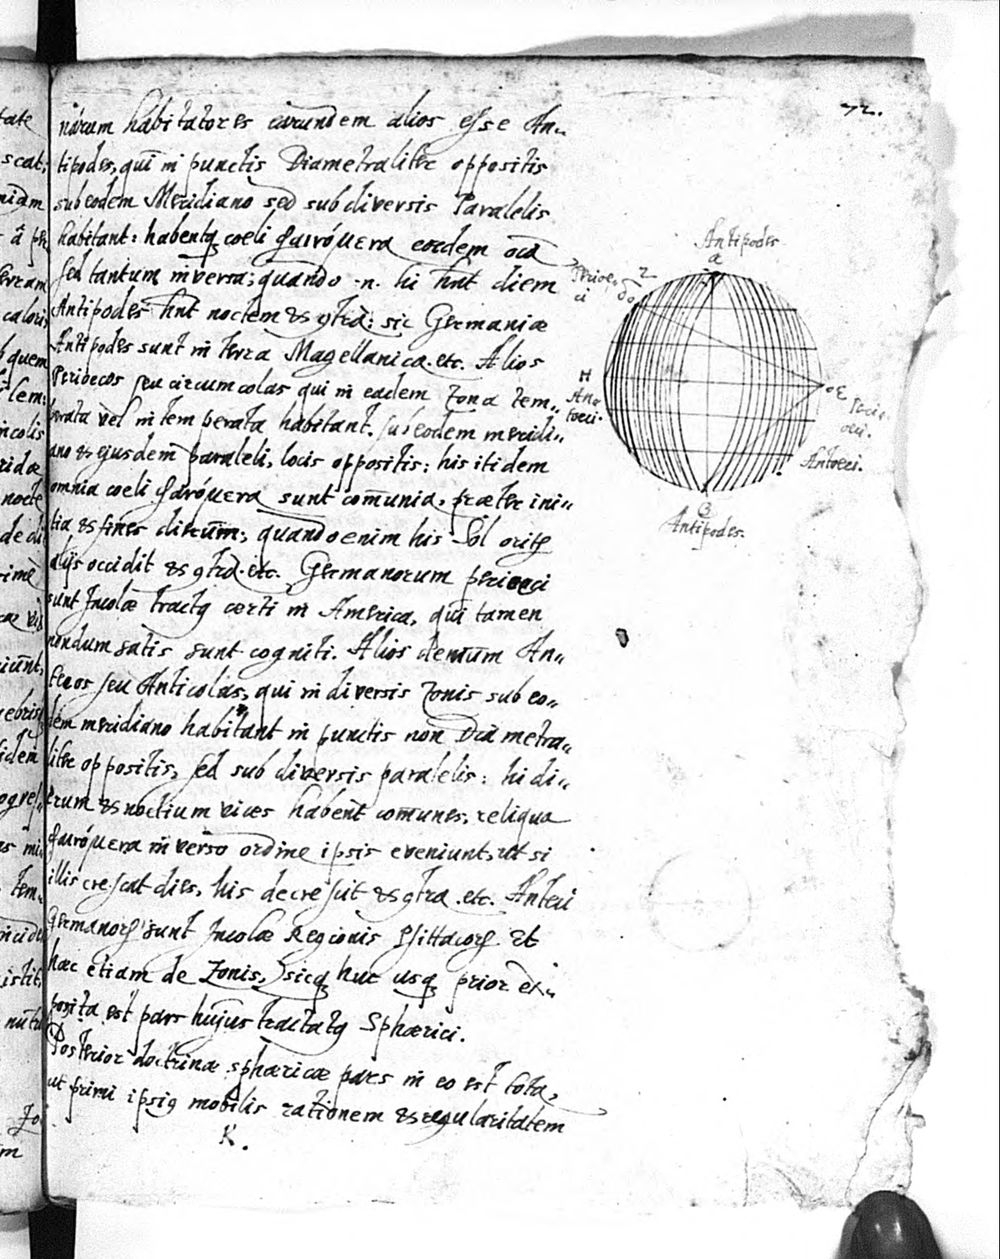 72.
narum habitatores earundem alios esse An„
tipodes, qui in punctis Diametraliter oppositis
sub eodem Meridiano sed sub diversis Paralelis
habitant: habentq coeli φαινόμενα eadem
sed tantum inversa; quando .n. hi hnt diem
Antipodes hnt noctem & 9tra: sic Germaniae
Antipodes sunt in terra Magellanica. etc. Alios
Perioecos seu circumcolas qui in eadem zona tem„
perata vel intemperata habitant. sub eodem meridi„
ano & ejusdem paraleli, locis oppositis: his itidem
omnia coeli φαινόμενα sunt comunia, praeter ini„
tia & fines dierum; quando enim his Sol orit
alijs occidit & 9tra. etc. Germanorum perioeci
sunt Incolae tract9 certi in America, qui tamen
nondum satis sunt cogniti. Alios demum An„
teos seu Anticolas, qui in diversis zonis sub eo„
dem meridiano habitant in punctis non Diametra„
liter oppositis, sed sub diversis paralelis: hi di„
erum & noctium vices habent comunes, reliqua
φαινόμενα inverso ordine ipsis eveniunt, ut si
illis crescat dies, his decrescit & 9tra. etc. Anteci
Germanor sunt Incolae Regionis Psittacor Et
haec etiam de Zonis, sicq huc usq prior ex„
posita est pars hujus tractat9 Sphaerici.
Posterior doctrinae sphaericae pars in eo est tota,
ut primi ipsi9 mobilis rationem & regularitatem
K.
Antipodes
a
Perioe„
ci
H
An„
toeci.
E
Perio„
eci.
Antoeci.
Antipodes.